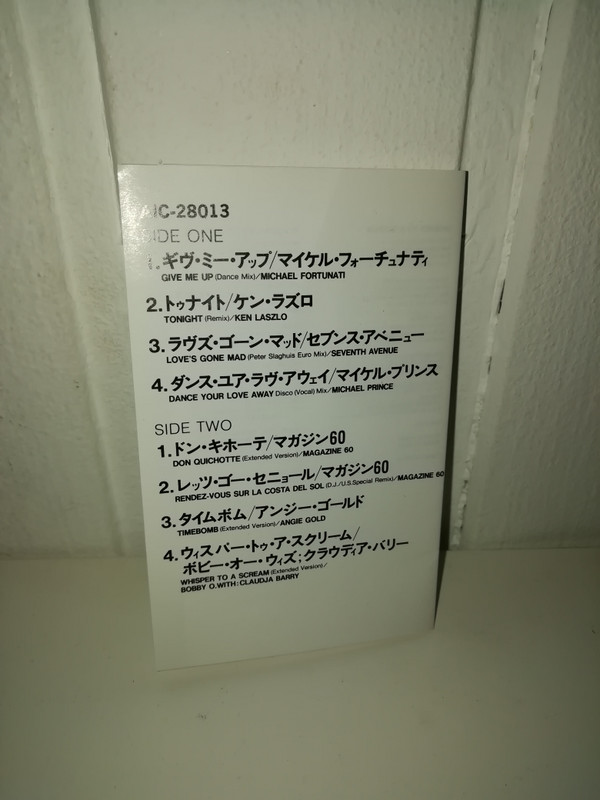 AIC-28013
SIDE ONE
1.ギヴ・ミー・アップ/マイケル・フォーチュナティ
GIVE ME UP (Dance Mix)/MICHAEL FORTUNATI
2.トゥナイト/ケン・ラズロ
TONIGHT (Remix)/KEN LASZLO
3.ラヴズ・ゴーン・マッド/セブンス・アベニュー
LOVE'S GONE MAD (Peter Slaghuis Euro Mix)/SEVENTH AVENUE
4.ダンス・ユア・ラヴ・アウェイ/マイケル・プリンス
DANCE YOUR LOVE AWAY Disco (Vocal) Mix/MICHAEL PRINCE
SIDE TWO
1.ドン・キホーテ/マガジン60
DON QUICHOTTE (Extended Version)/MAGAZINE 60
2.レッツ・ゴー・セニョール/マガジン60
RENDEZ-VOUS SUR LA COSTA DEL SOL (D.J./U.S.Special Remix)/MAGAZINE 60
3.タイムボム/アンジー・ゴールド
TIMEBOMB (Extended Version)/ANGIE GOLD
4.ウィスパー・トゥ・ア・スクリーム/
ボビー・オー・ウィズ;クラウディア・バリー
WHISPER TO A SCREAM (Extended Version)/
BOBBY O.WITH:CLAUDJA BARRY